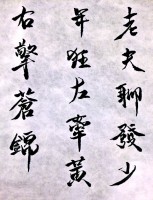 老夫聊發少
年狂左牽黃
右擎蒼錦